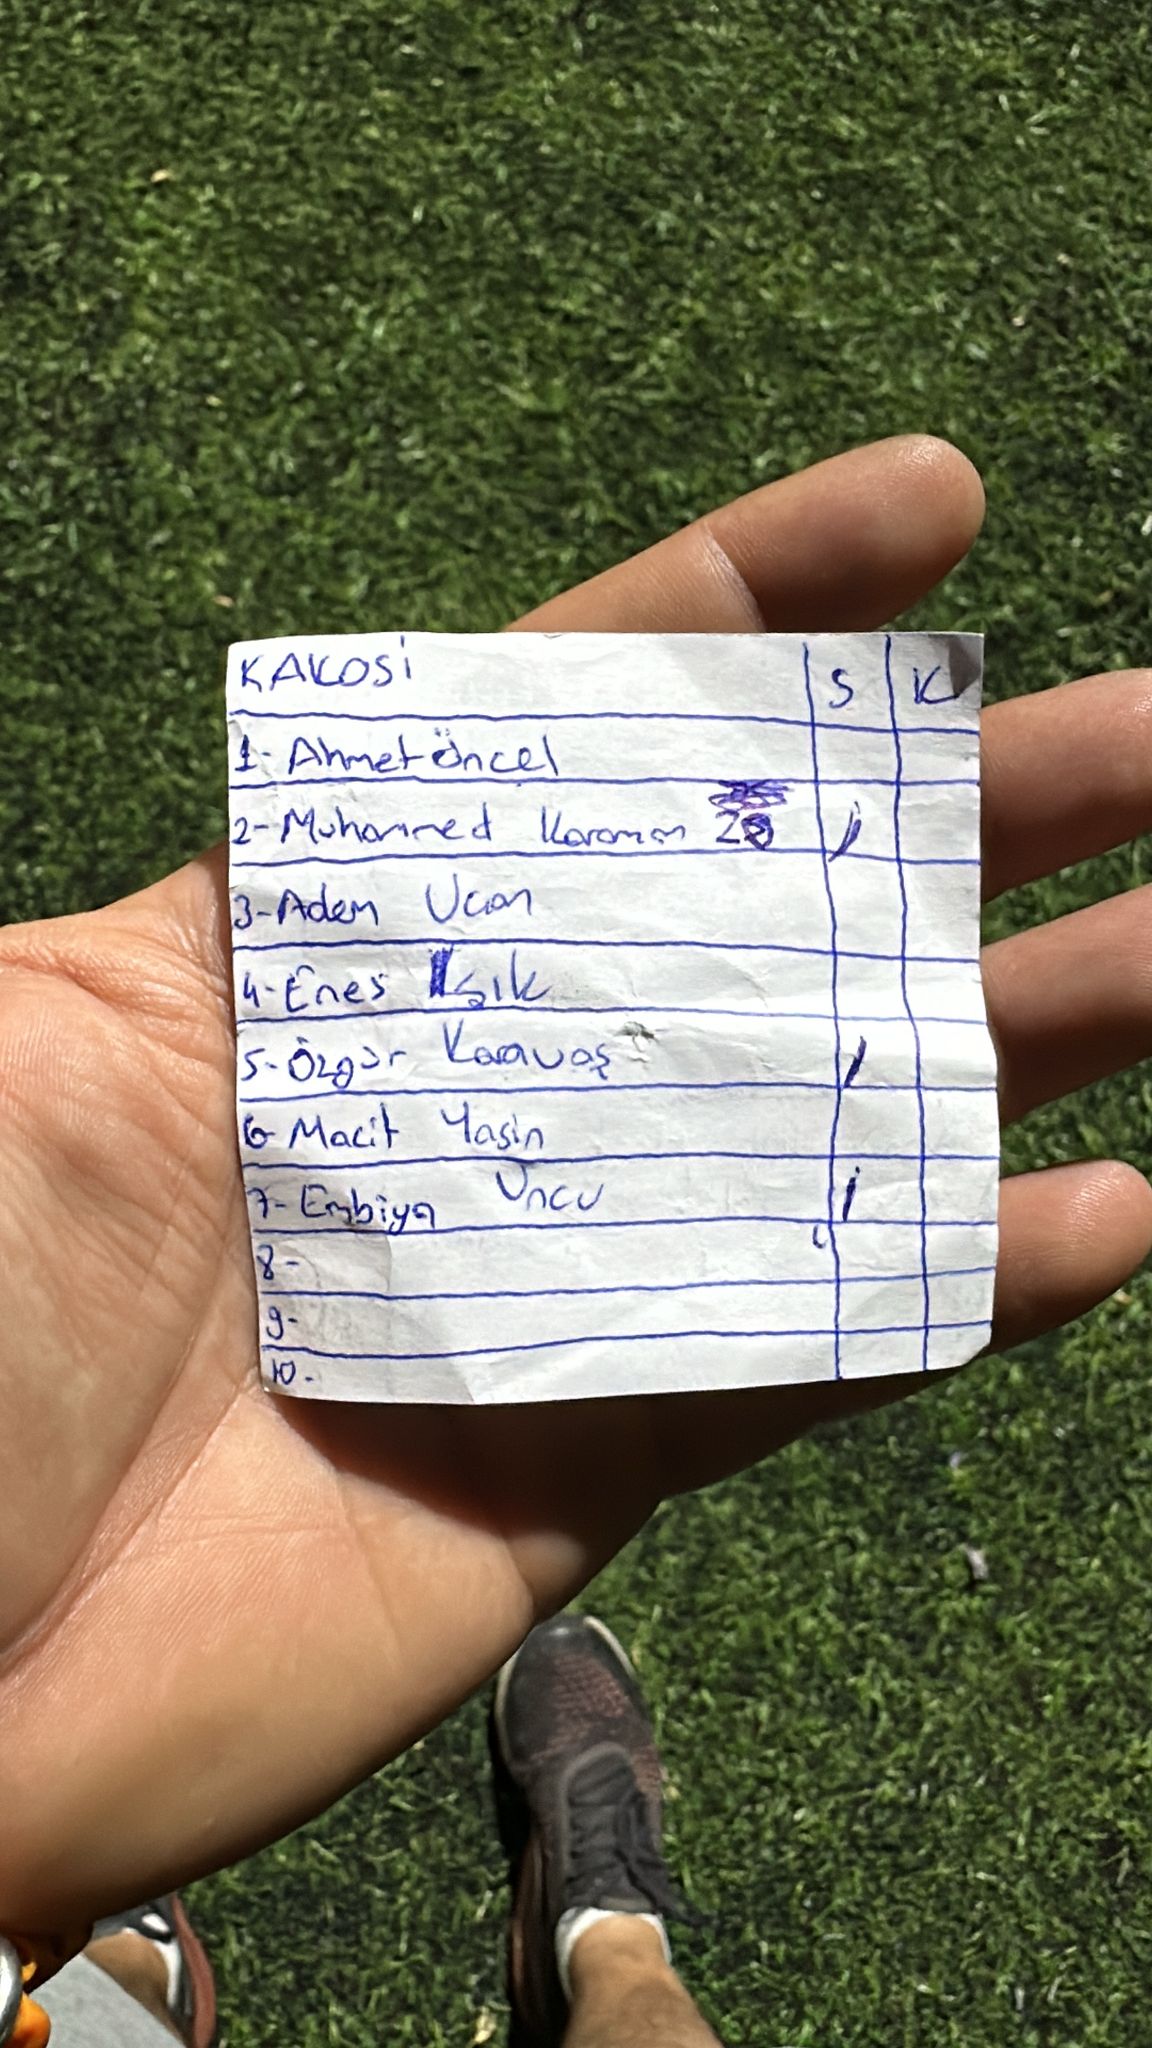 KAKOSİ S K
1- Ahmet Öncel
2- Muhammed Karaman 28 /
3- Adem Ucan
4- Enes Işık
5- Özgür Karavaş /
6- Macit Yasin
7- Embiya Uncu /
8-
9-
10-